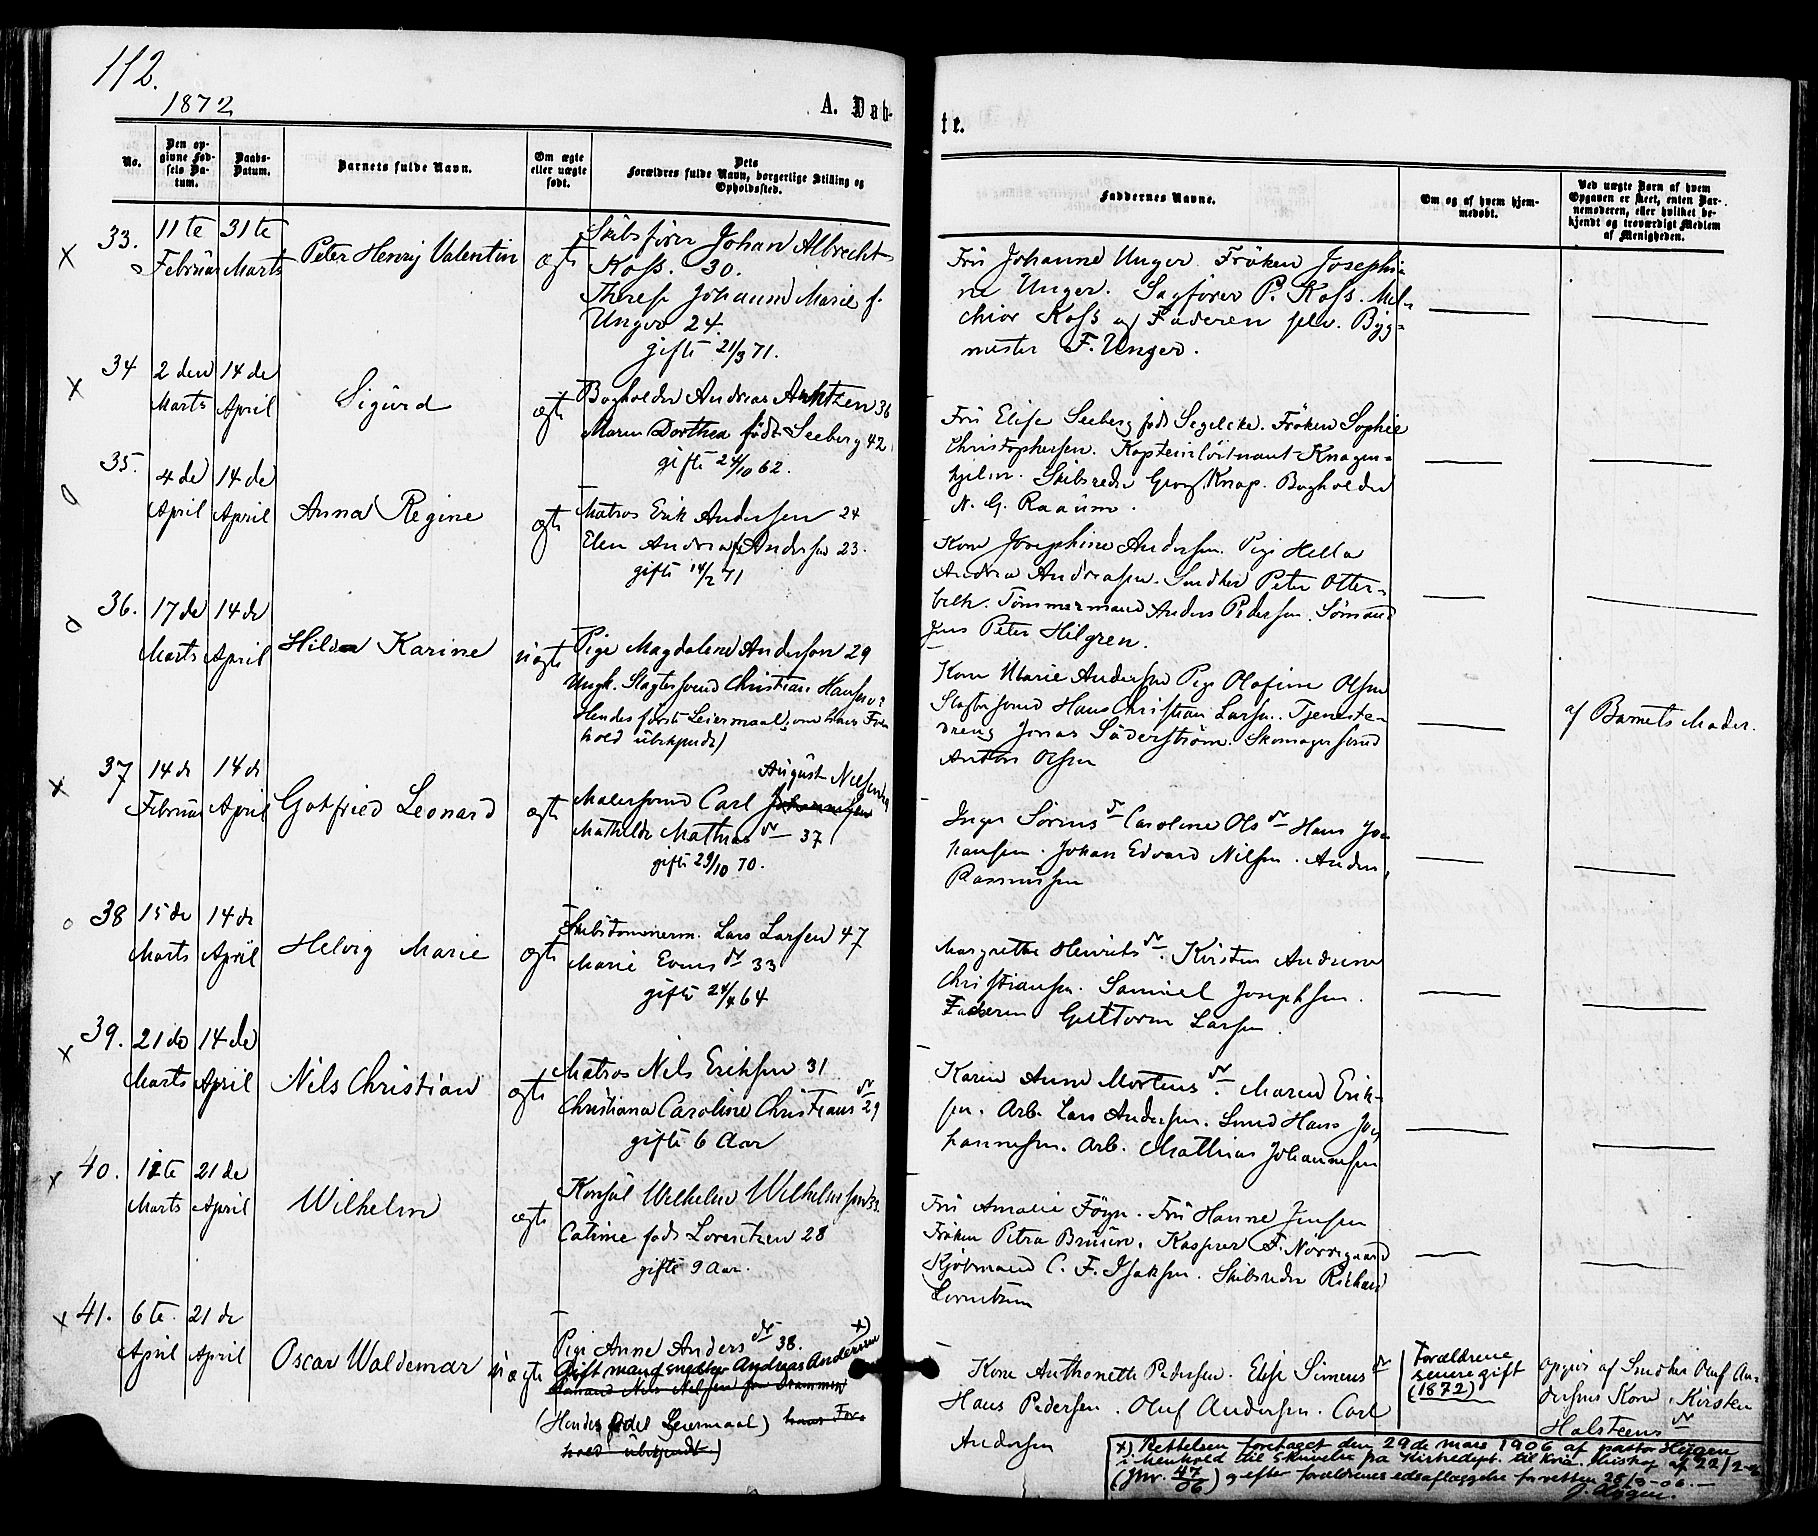 112.
1872
A. Døb-
te.
No.
Den op-
givne Fød-
sels Da-
tum.
Daabs-
Datum.
Barnets fulde Navn.
Om ægte
eller uægte
født.
Dets
Forældres fulde Navn, borgerlige Stilling og
Opholdssted.
Faddernes Navne.
Om og af hvem hjem-
medøbt.
Ved uægte Børn af hvem
Opgaven er skeet, enten Bar-
nemoderen, eller hvilket be-
kjendt og troværdigt Medlem
af Menigheden.
x 33. 11te 31te
Februar Marts
Peter Henrij Valentin
ægte
Skibsfører Johan Albrecht
Koss. 30.
Therese Johanne Marie f.
Unger 24.
gifte 21/3 71.
Fru Johanne Unger. Frøken Josephi-
ne Unger. Sagfører P. Koss. Mel-
chior Koss og Faderen selv. Byg-
mester F. Unger.
x 34 2den 14de
Marts April
Sigurd
ægte
Bogholder Andreas Arntzen 36
Maren Dorthea født Seeberg 42
gifte 24/10 62.
Fru Elise Seeberg født Segelcke. Frøken Sophie
Christophersen. Kapteinløitnant Knagen-
hjelm. Skibsreder Georg Knap. Bogholder
N. G. Raaum.
o 35. 4de 14de
April April
Anna Regine
ægte
Matros Erik Andersen 24
Elen Andrea Andersen 23.
gifte 14/2 71
Kone Josephine Andersen. Pige Hella
Andrea Andreasen. Snedker Peter Otter-
beck. Tømmermand Anders Pedersen. Sømand
Jens Peter Hilgren.
o 36. 17de 14de
Marts April
Hilda Karine
uægte
Pige Magdalene Andersen 29
Ungk. Slagtersvend Christian Hansen
(Hendes første Leiermaal, om hans For-
hold ubekjendt)
Kone Marie Andersen Pige Olafine Olsen
Slagtersvend Hans Christian Larsen. Tjeneste-
dreng Jonas Söderström. Skomagersvend
Anton Olsen
af Barnets Moder.
x 37 14de 14de
Februar April
Gotfried Leonard
ægte
August Nilsen
Malersvend Carl Johannesen
Mathilde Mathias dr 37
gifte 29/10 70.
Inger Sørens dr Caroline Ols dr Hans Jo-
hansen. Johan Edvard Nilsen. Anders
Rasmussen
o 38 15de 14de
Marts April
Helvig Marie
ægte
Skibstømmerm. Lars Larsen 47
Marie Evens dr 33
gifte 24/4 64
Margrethe Henriks dr. Kirsten Andrine
Christiansen. Samuel Josephsen.
Faderen Guttorm Larsen.
x 39. 21de 14de
Marts April
Nils Christian
ægte
Matros Nils Eriksen 31
Christiana Caroline Christians dr 29
gifte 6 Aar
Karen Anne Mortens dr. Maren Erik-
sen. Arb. Lars Andersen. Smed Hans Jo-
hannesen. Arb. Mathias Johannesen
x 40. 12te 21de
Marts April
Wilhelm
ægte
Konsul Wilhelm Wilhelmsen 32.
Catine født Lorentzen 28
gifte 9 Aar.
Fru Amalie Föyn. Fru Hanne Jensen
Frøken Petra Bruun. Kasserer F. Nørregaard
Kjøbmand C. F. Isaksen. Skibsreder Richard
Lorentzen
x 41. 6te 21de
April April
Oscar Waldemar
uægte
Pige Anne Anders dr 38. x)
Gift mand snedker Andreas Andersen
Sømand Nils Nilsen fra Drammen
(Hendes første Leiermaal) hans For-
hold ubekjendt)
Kone Anthonette Pedersen. Elise Simens dr
Hans Pedersen. Oluf Andersen. Carl
Andersen
Forældrene
senere gift
(1872)
Opgiv. af Snedker Oluf An-
dersens Kone, Kirsten
Halsteens dr
x) Rettelsen foretaget den 29de mars 1906 af pastor Hygen
i henhold til skrivelse fra Kirkedept. til Kria. biskop af 22/2-06
(Jnr. 47/06) og efter forældrenes edsaflæggelse for retten
J. Hygen.